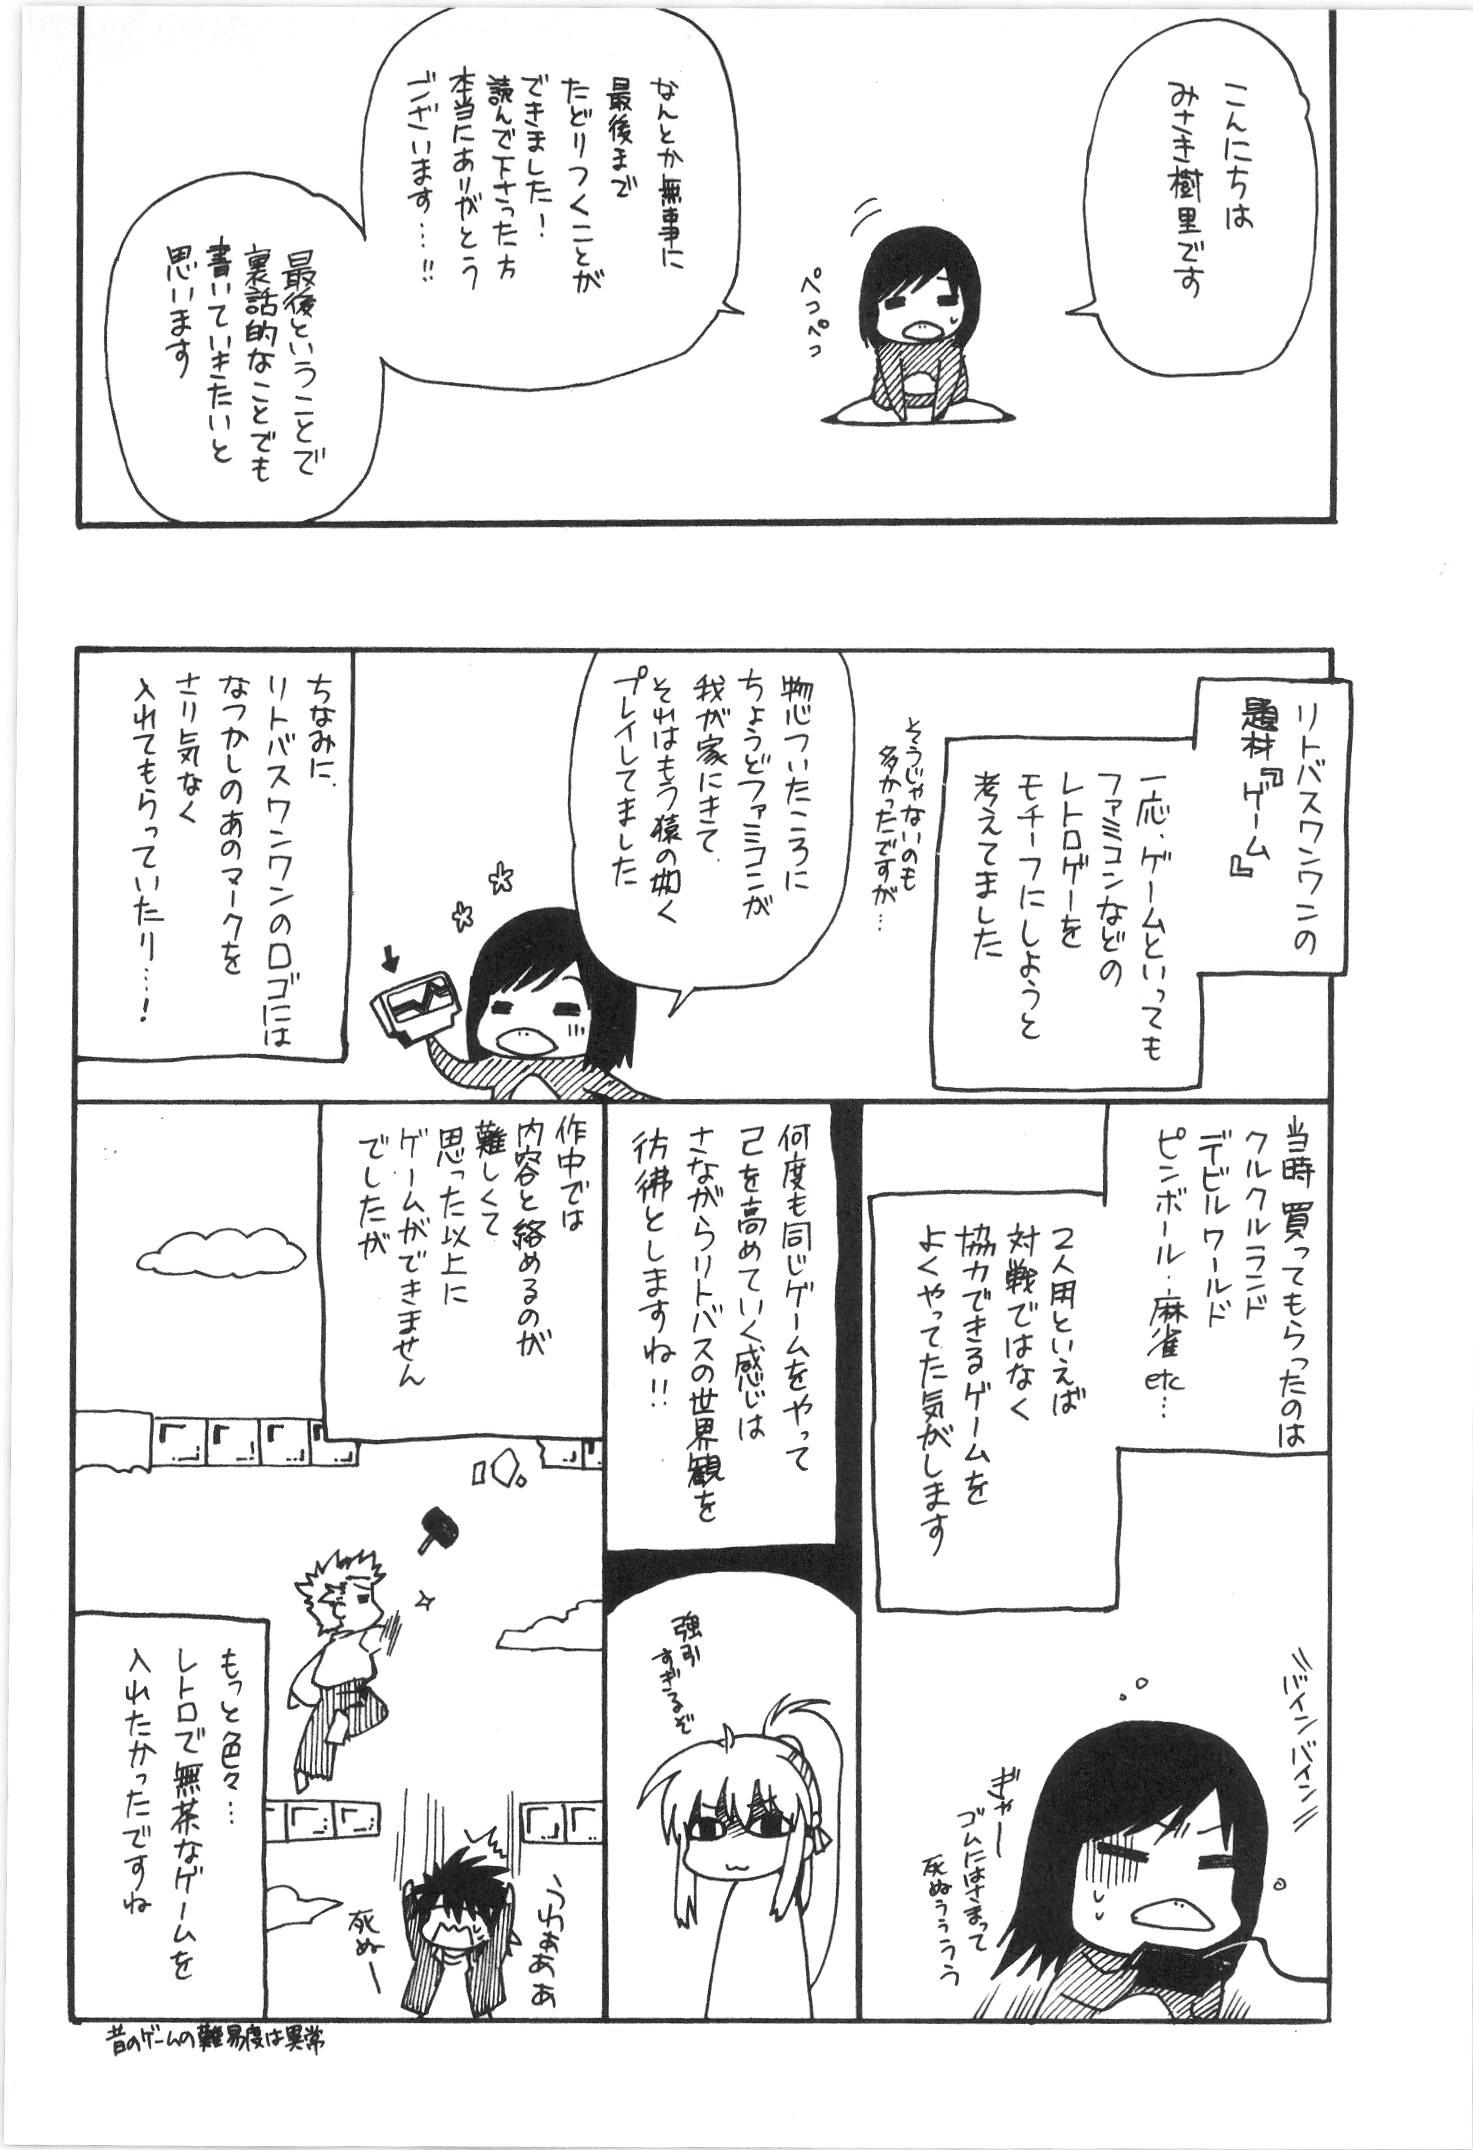 こんにちは
みさき樹里です
ペコペコ
なんとか無事に
最後まで
たどりつくことが
できました!
読んで下さった方
本当にありがとう
ございます…!!
最後ということで
裏話的なことでも
書いていきたいと
思います
リトバスワンワンの
題材『ゲーム』
一応、ゲームといっても
ファミコンなどの
レトロゲーを
モチーフにしようと
考えてました
そうじゃないのも
多かったですが…
物心ついたころに
ちょうどファミコンが
我が家にきて
それはもう猿の如く
プレイしてました
ちなみに、
リトバスワンワンのロゴには
なつかしのあのマークを
さり気なく
入れてもらっていたり…!
当時買ってもらったのは
クルクルランド
デビルワールド
ピンボール・麻雀
etc…
2人用といえば
対戦ではなく
協力できるゲームを
よくやってた気がします
バインバイン
ぎゃー
ゴムにはさまって
死ぬぅぅぅぅ
何度も同じゲームをやって
己を高めていく感じは
さながらリトバスの世界観を
彷彿としますね!!
強引
すぎるぞ
作中では
内容と絡めるのが
難しくて
思った以上に
ゲームができません
でしたが
うわぁぁぁ
死ぬー
もっと色々…
レトロで無茶なゲームを
入れたかったですね
昔のゲームの難易度は異常